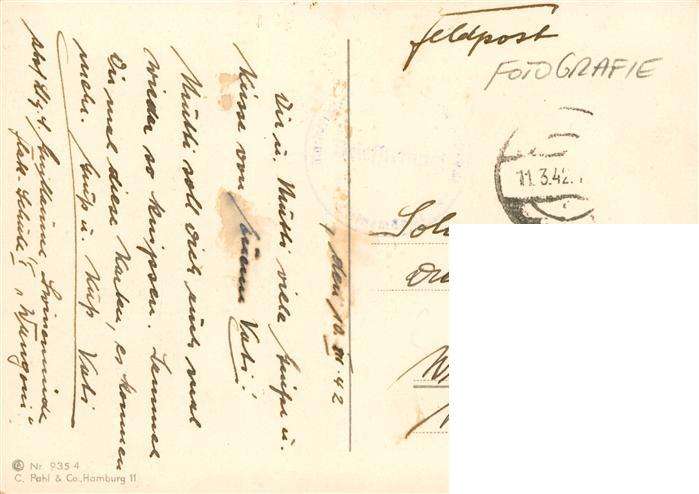 Feldpost
FOTOGRAFIE
11.3.42.
den 10. III. 42
Dir u. Mutti viele Grüße u.
Küsse von Vati!
Mutti soll Dich auch mal
wieder so knipsen. Sammel
Dir mal diese Karten, es kommen
mehr. Gruß u. Kuß Vati
Swinemünde
Nr. 935 4
C. Pahl & Co., Hamburg 11